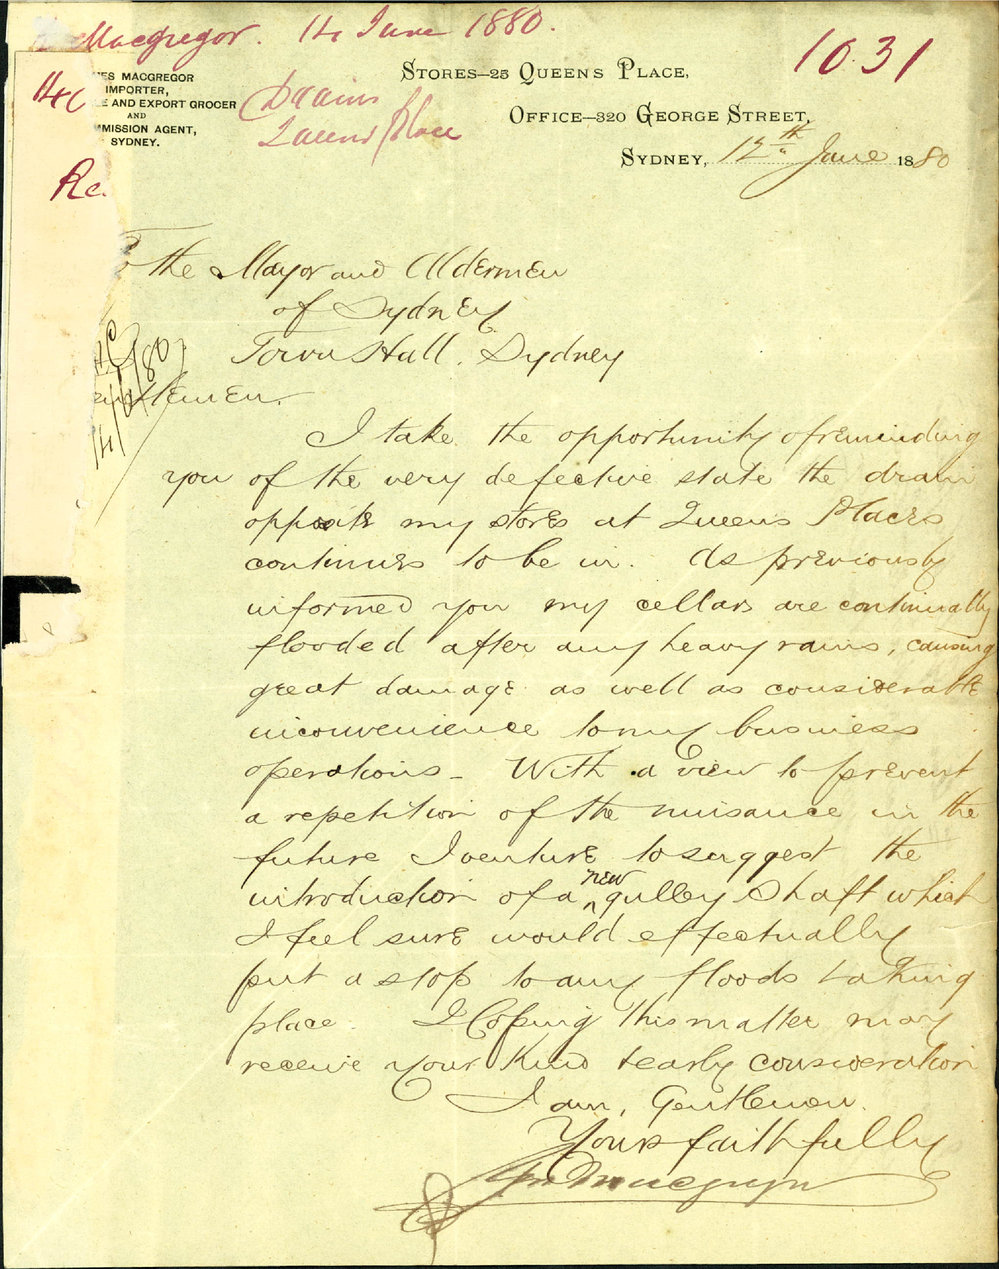 Macgregor. 14 June 1880.
1031
MES MACGREGOR
IMPORTER,
LE AND EXPORT GROCER
AND
MMISSION AGENT,
SYDNEY.
Drains
Queens Place
STORES—25 QUEENS PLACE,
OFFICE—320 GEORGE STREET,
SYDNEY, 12th June 1880
Re
To the Mayor and Aldermen
of Sydney
Town Hall. Sydney
14/6/80
entlemen.
I take the opportunity of reminding
you of the very defective state the drain
opposite my stores at Queens Places
continues to be in. As previously
informed you my cellars are continually
flooded after any heavy rains, causing
great damage as well as considerable
inconvenience to my business
operations - With a view to prevent
a repetition of the nuisance in the
future I venture to suggest the
introduction of a new gulley shaft which
I feel sure would effectually
put a stop to any floods taking
place. Hoping this matter may
receive your kind & early consideration
I am, Gentlemen.
Yours faithfully
Jas Macgregor